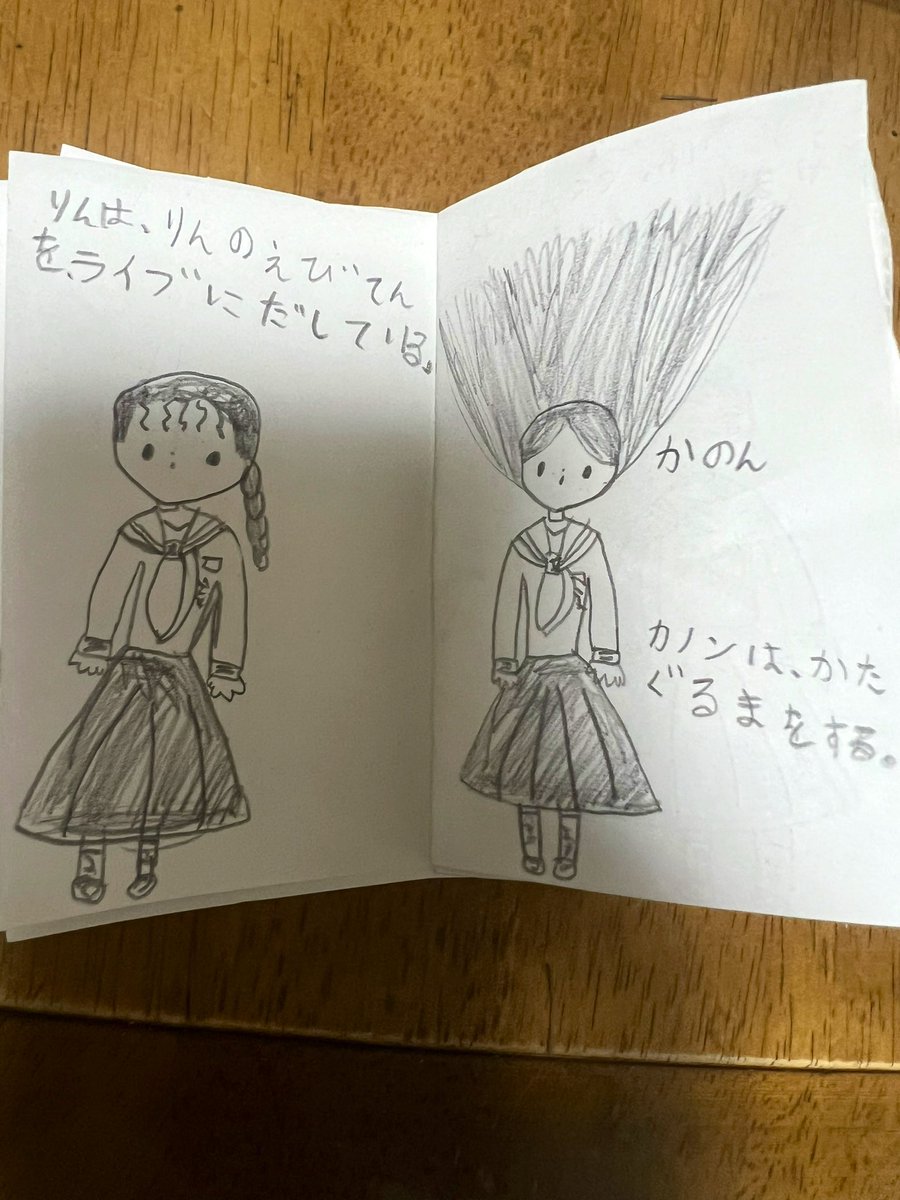 りんは、りんのえびてん
を、ライブにだしている。
かのん
カノンは、かた
ぐるまをする。